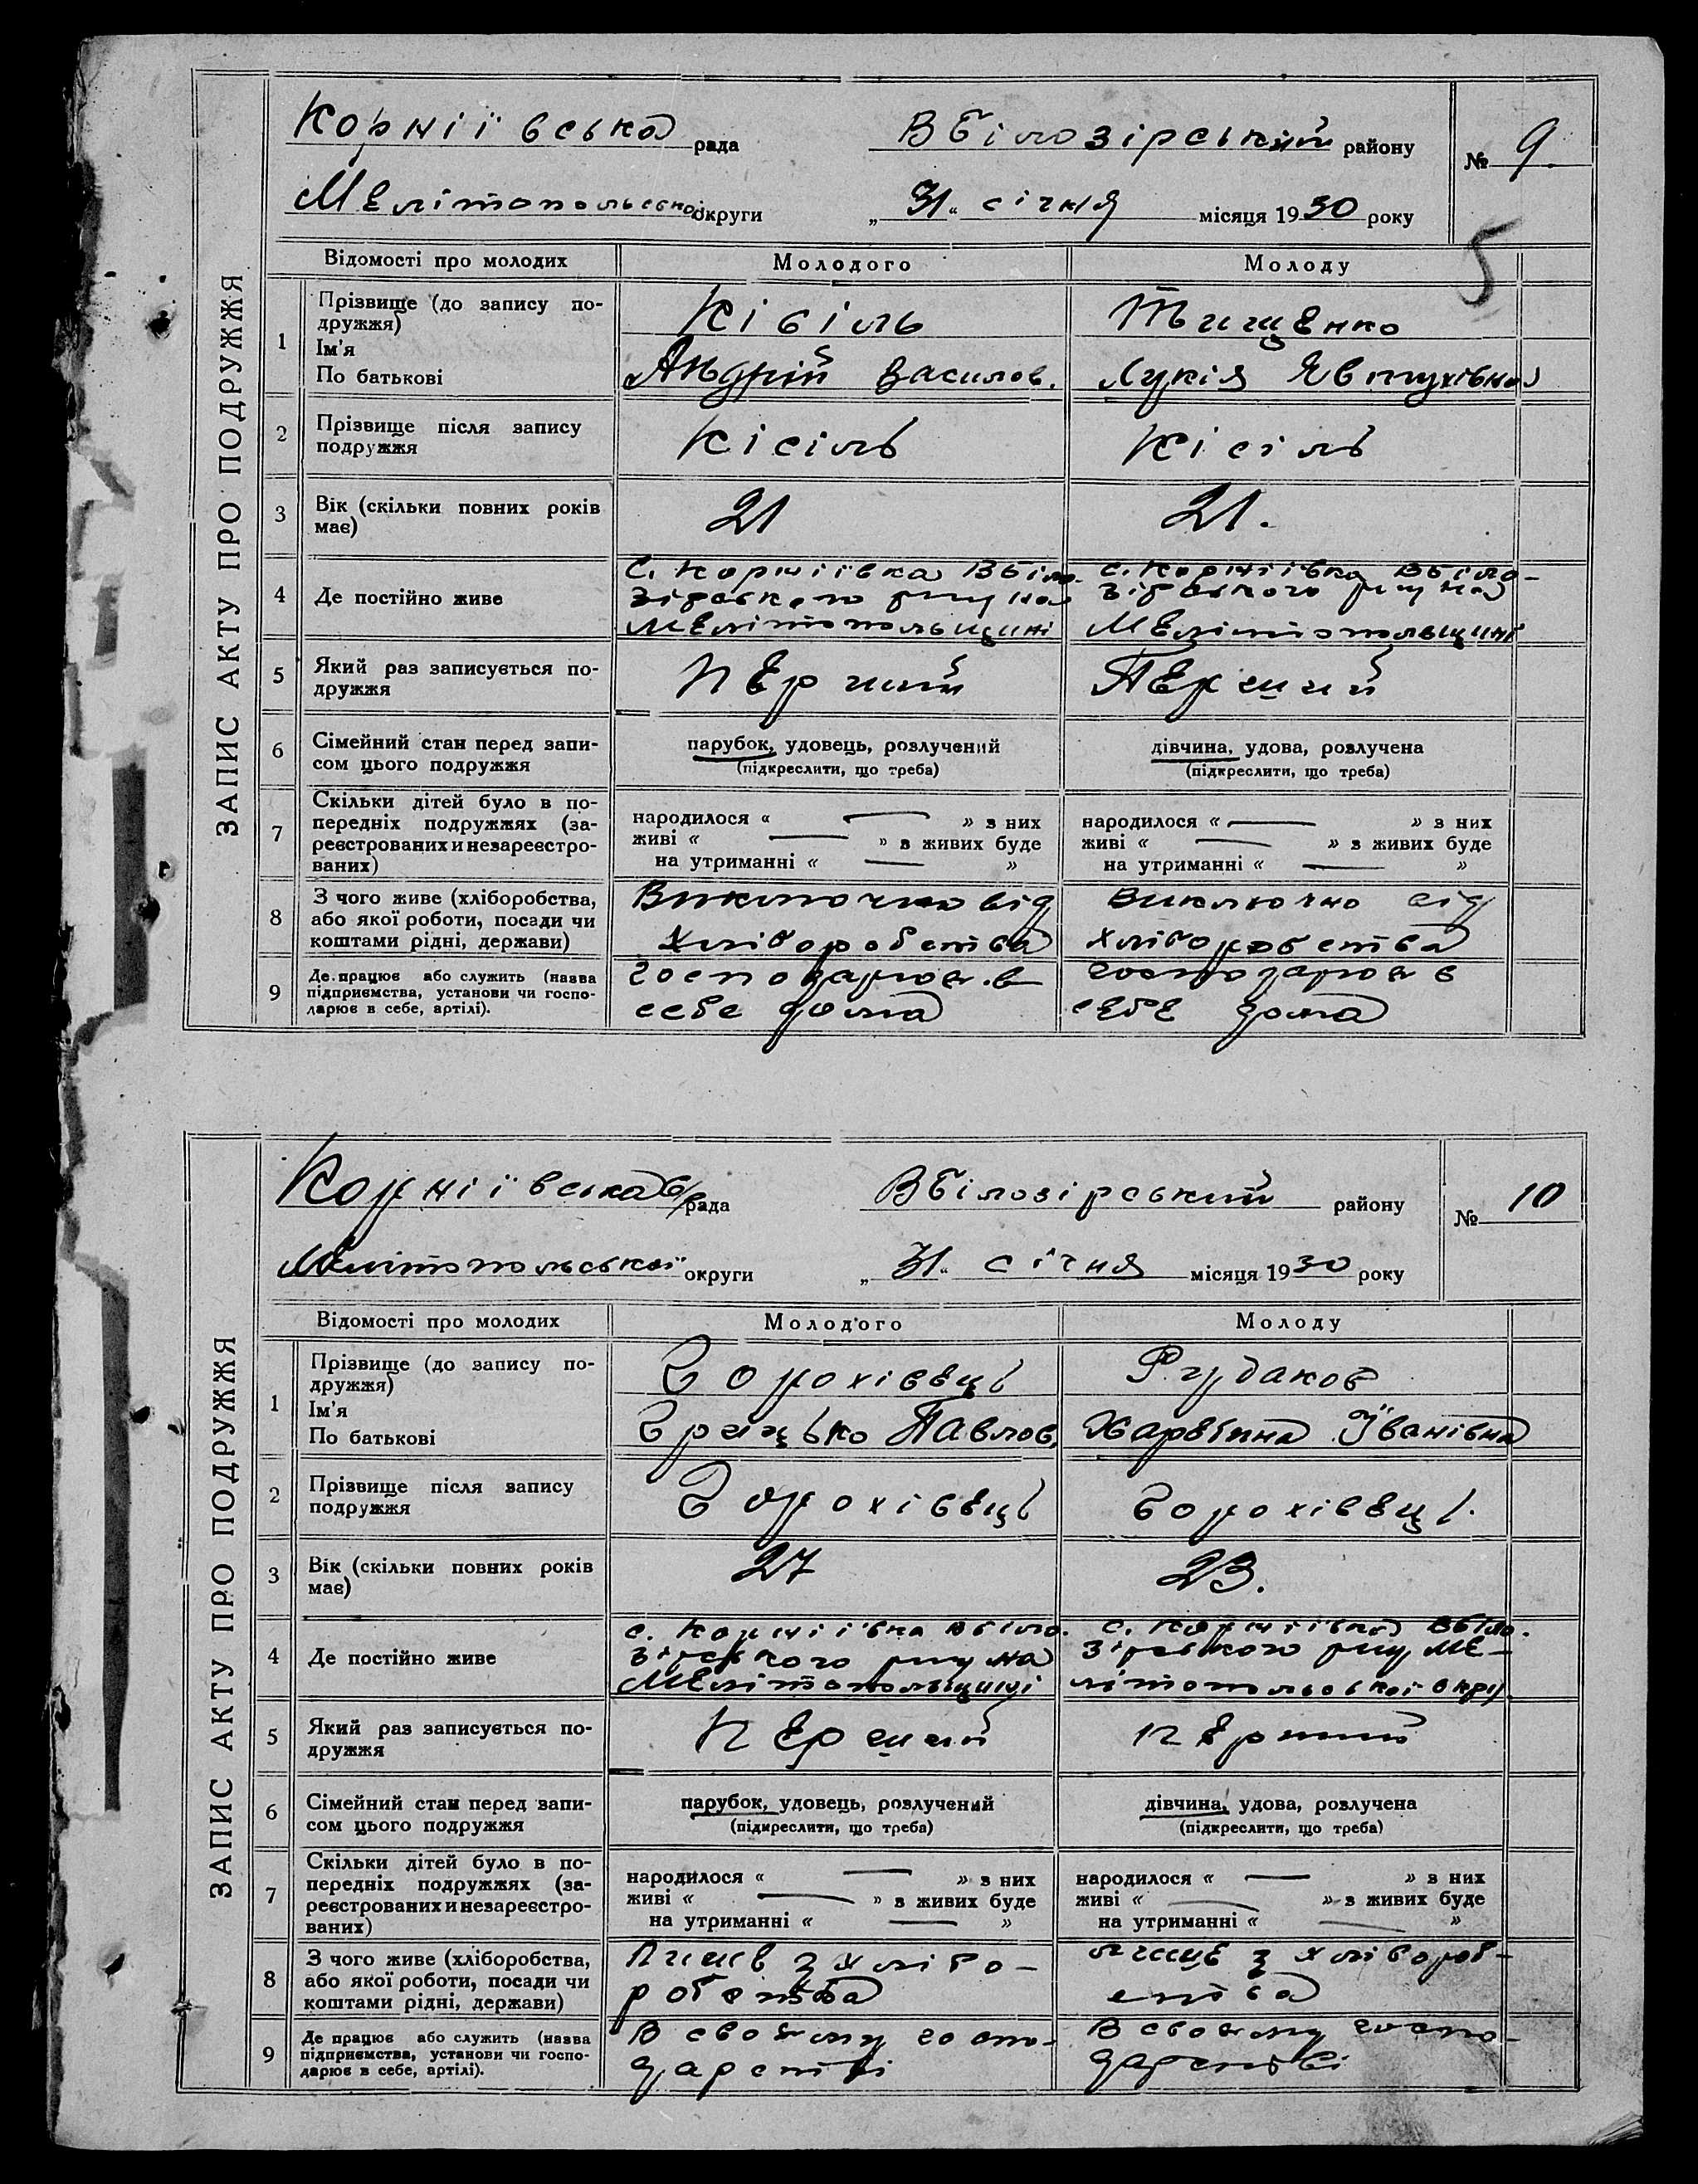 ЗАПИС АКТУ ПРО ПОДРУЖЖЯ
Корніївська рада Вбілозірський району № 9.
Мелітопольської округи „31“ січня місяця 1930 року
5
Відомості про молодих Молодого Молоду
1 Прізвище (до запису по-
дружжя) Кісіль Тищенко
Ім'я
По батькові Андрій Василов. Лукія Явтухівна
2 Прізвище після запису
подружжя Кісіль Кісіль
3 Вік (скільки повних років
має) 21 21.
4 Де постійно живе
с. Корніївка Вбіло- с. Корніївка Вбіло-
зірського району зірського району
Мелітопольщині Мелітопольщині
5 Який раз записується по-
дружжя Перший Перший
6 Сімейний стан перед запи-
сом цього подружжя
парубок, удовець, розлучений дівчина, удова, розлучена
(підкреслити, що треба) (підкреслити, що треба)
7 Скільки дітей було в по-
передніх подружжях (за-
реєстрованих и незареєстро-
ваних)
народилося « — » з них народилося « — » з них
живі « — » з живих буде живі « — » з живих буде
на утриманні « — » на утриманні « — »
8 З чого живе (хліборобства,
або якої роботи, посади чи
коштами рідні, держави)
Виключно від Виключно від
хліборобства хліборобства
9 Де працює або служить (назва
підприємства, установи чи госпо-
дарює в себе, артілі).
господарює в господарює в
себе дома себе дома
ЗАПИС АКТУ ПРО ПОДРУЖЖЯ
Корніївська с/рада Вбілозірський району № 10
Мелітопольської округи „31“ січня місяця 1930 року
Відомості про молодих Молодого Молоду
1 Прізвище (до запису по-
дружжя) Горохівець Рудаков
Ім'я
По батькові Грицько Павлов. Харвіна Іванівна
2 Прізвище після запису
подружжя Горохівець Горохівець.
3 Вік (скільки повних років
має) 27 23.
4 Де постійно живе
с. Корніївка Вбіло- с. Корніївка Вбіло-
зірського зірського Ме-
Мелітопольщині літопольської окр.
5 Який раз записується по-
дружжя Перший перший
6 Сімейний стан перед запи-
сом цього подружжя
парубок, удовець, розлучений дівчина, удова, розлучена
(підкреслити, що треба) (підкреслити, що треба)
7 Скільки дітей було в по-
передніх подружжях (за-
реєстрованих и незареєстро-
ваних)
народилося « — » з них народилося « — » з них
живі « — » з живих буде живі « — » з живих буде
на утриманні « — » на утриманні « — »
8 З чого живе (хліборобства,
або якої роботи, посади чи
коштами рідні, держави)
з хлібо- лише з хлібороб-
робства ства
9 Де працює або служить (назва
підприємства, установи чи госпо-
дарює в себе, артілі).
В своєму госпо- В своєму госпо-
дарстві дарстві